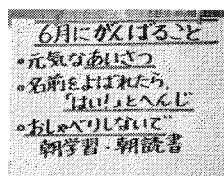 6月にがんばること
●元気なあいさつ
●名前をよばれたら、
「はい!」とへんじ
●おしゃべりしないで
朝学習・朝読書